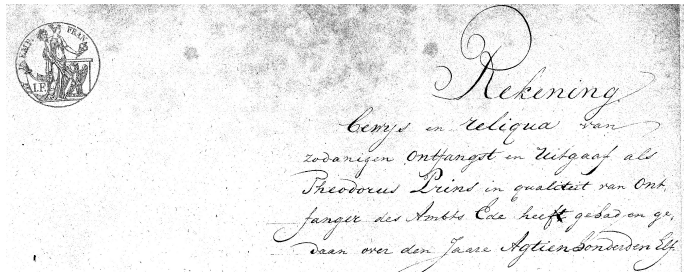 EMP. FRAN.
I.P.
Rekening
bewys en reliqua van
zodanigen ontfangst en uitgaaf als
Theodorus Prins in qualiteit van ont
fanger des Ambts Ede heeft gehad en ge,
daan over den Jaare Agtienhonderden Elf